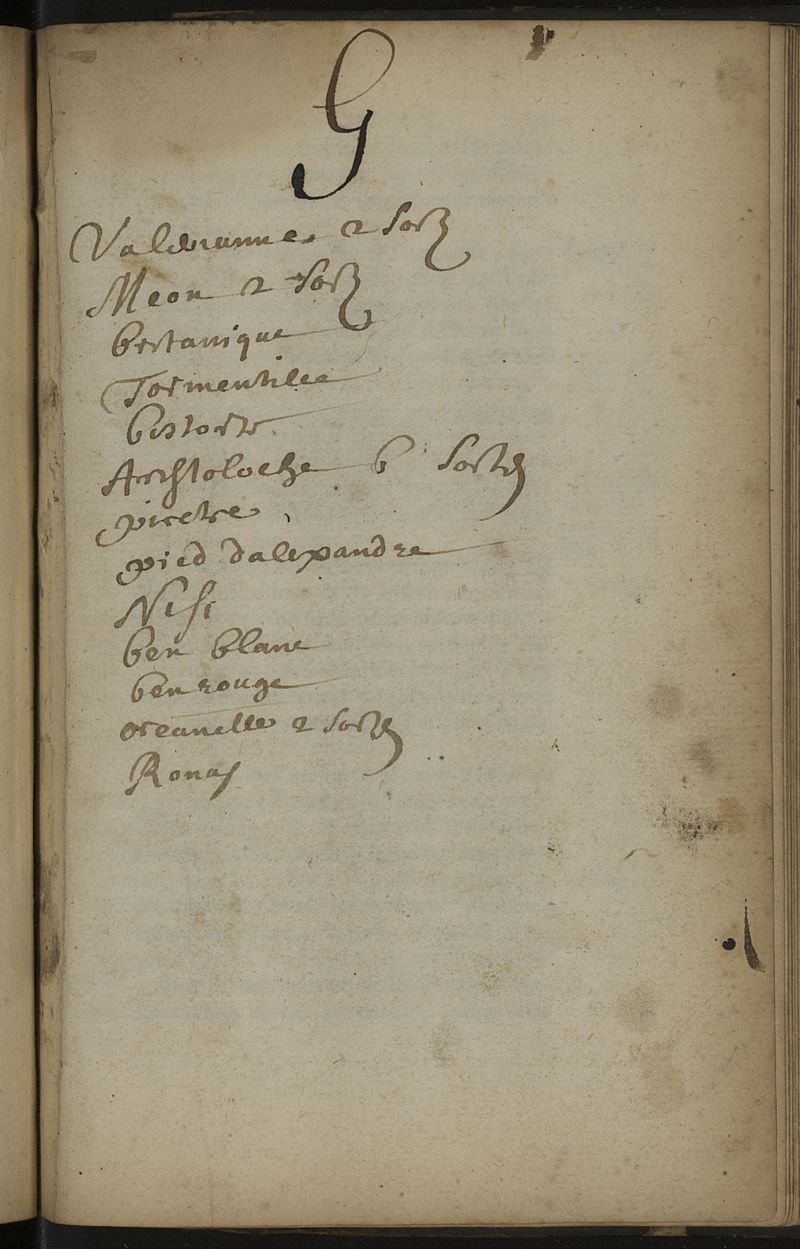 G
Valerianne 2 Sortz
Meon 2 Sortz
bretanique
Tormentilee
bistorte
Aristoloche 6 Sortes
piretre
pied dalexandre
Nisi
ben blanc
ben rouge
orcanelle 2 Sortes
Ronas